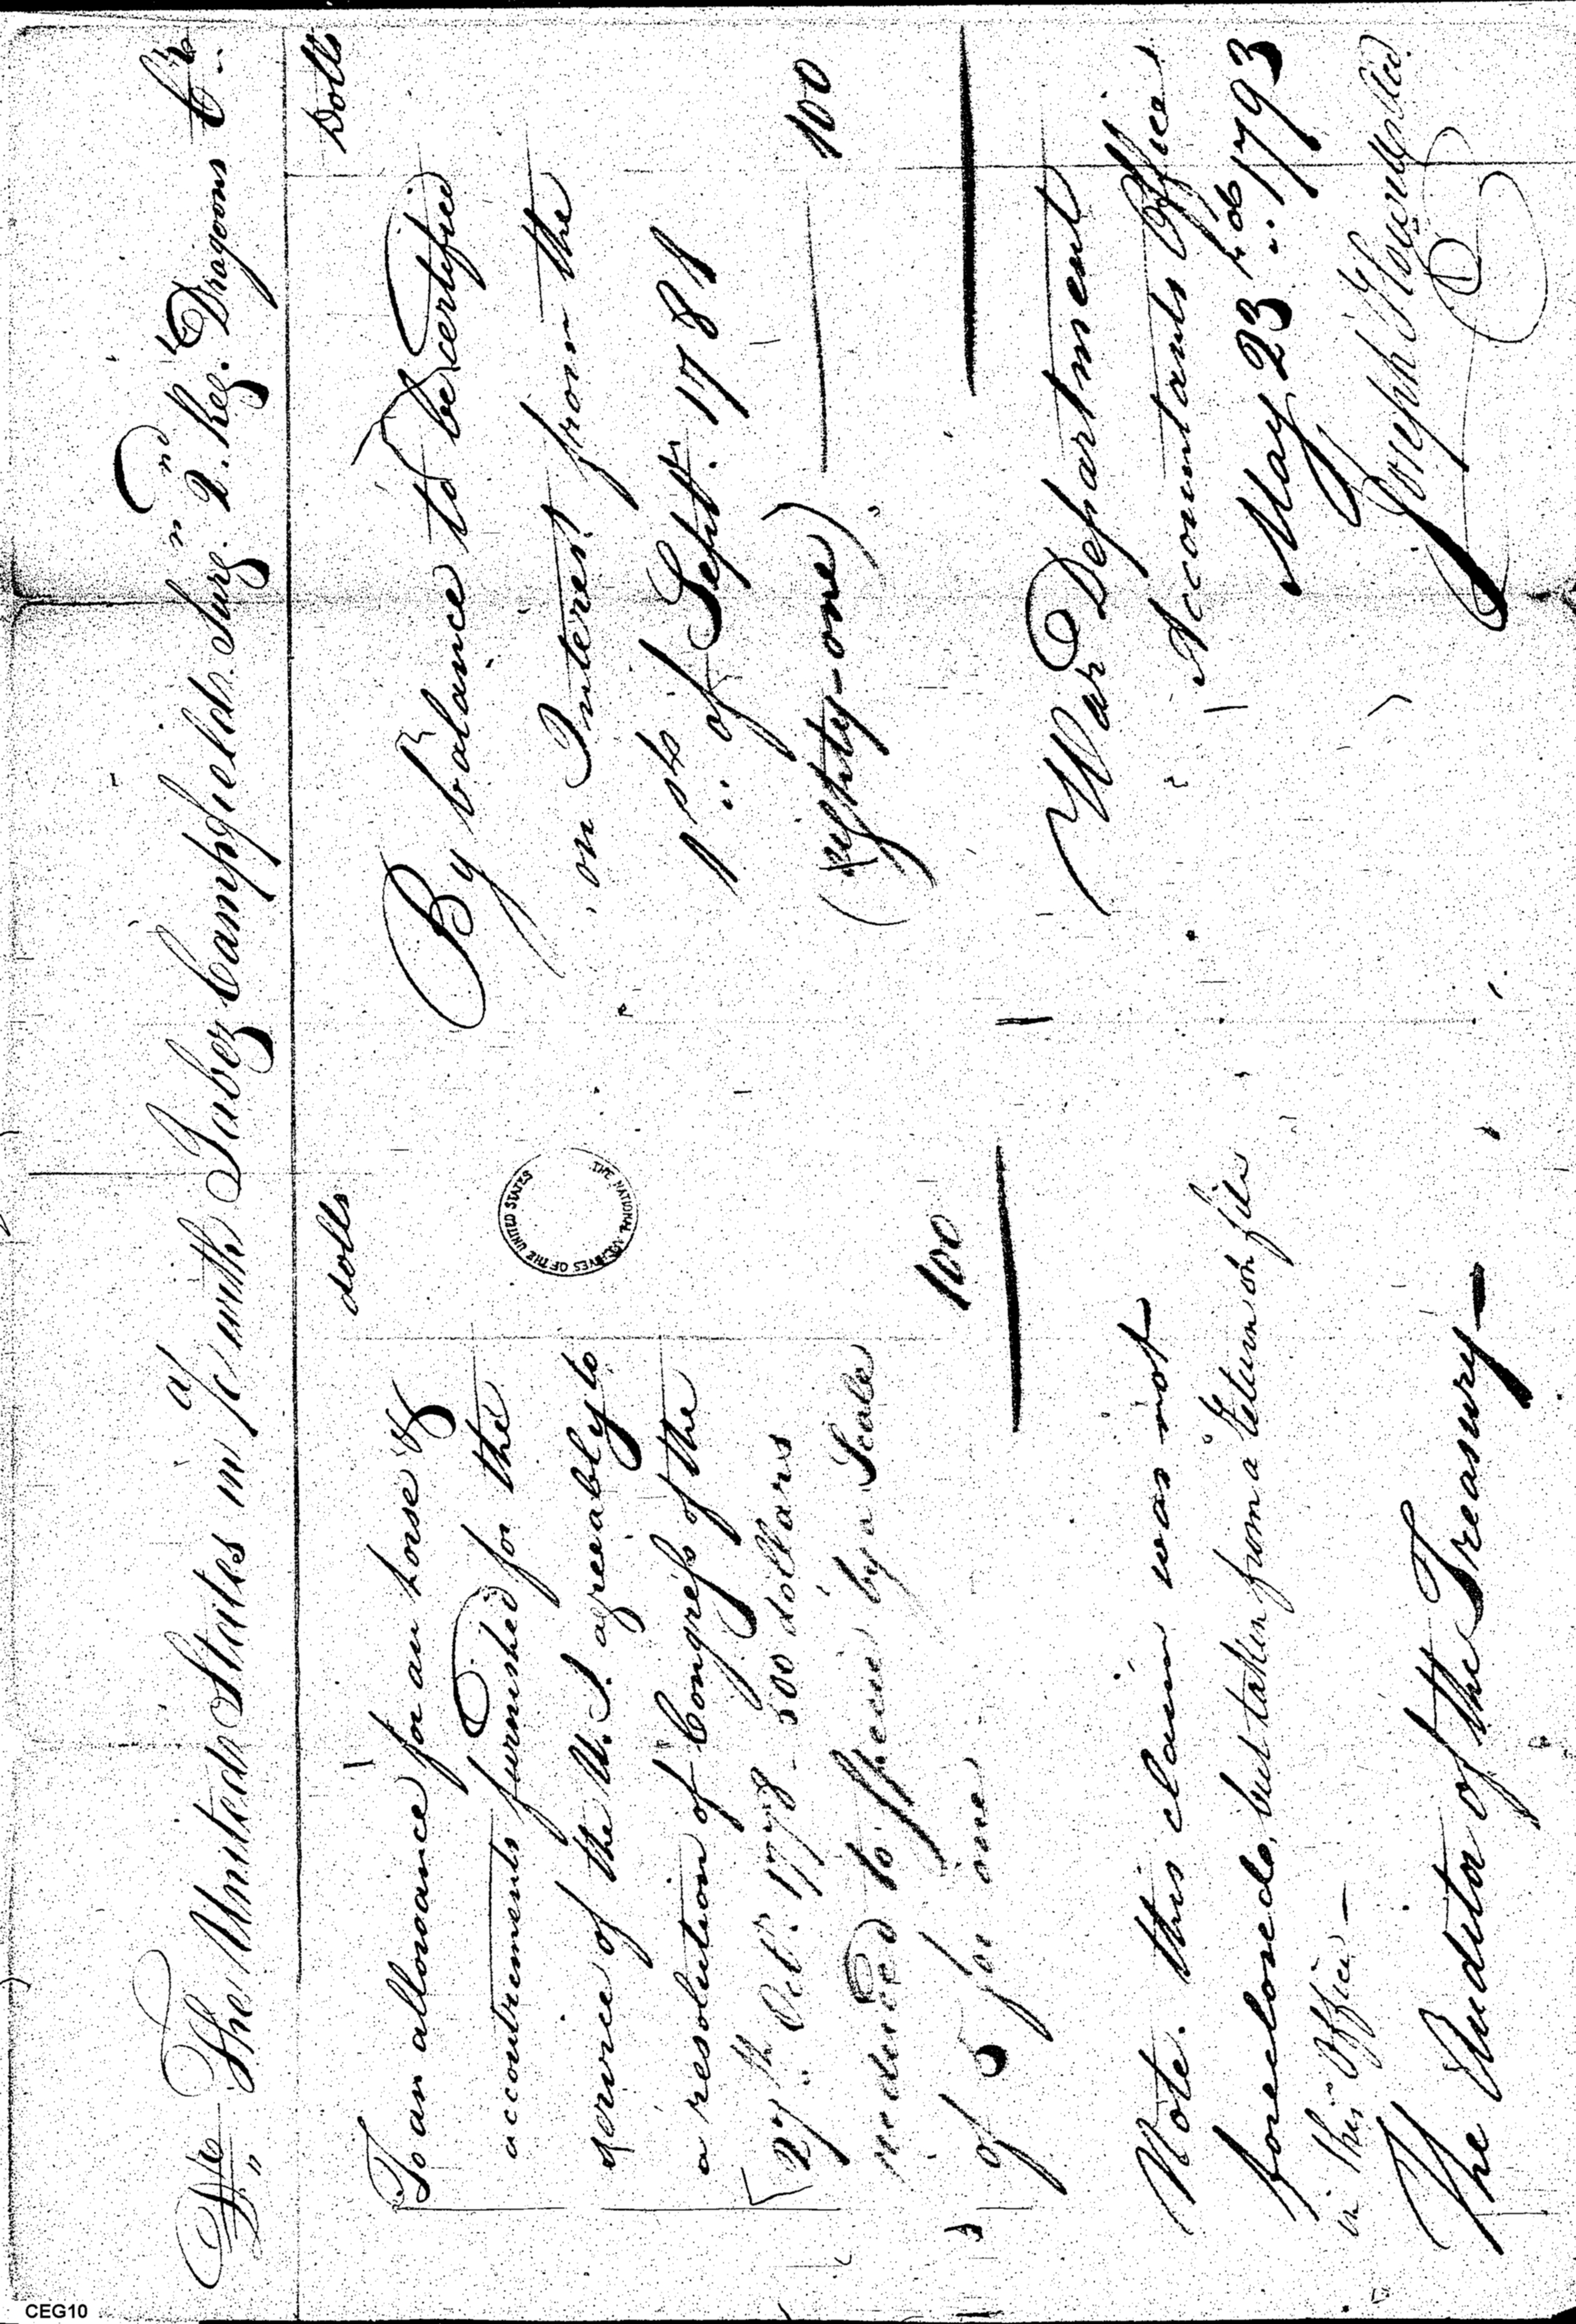 Dr. The United States in a/c with Jabez Campfield Surgn 2nd Reg. Dragoons Cr.
dolls
To an allowance for an horse &
accoutrements furnished for the
service of the U.S. agreeably to
a resolution of Congress of the
27th Octr. 1778 - 500 dollars
reduced to specie by a Scale
of 5 for one
100
Dolls
By balance to be certified
on Interest from the
1st of Septr. 1781
(eighty-one)
100
Note. this claim was not
foreclosed, but taken from a return on file
in this Office -
The Auditor of the Treasury -
War Department
Accountants Office
May 23rd 1793
Joseph Howell
THE NATIONAL ARCHIVES OF THE UNITED STATES
CEG10